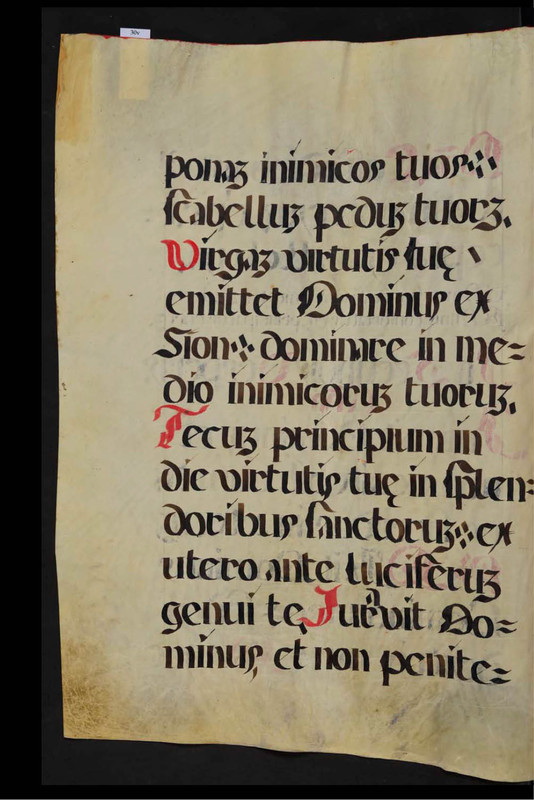 30v
ponaꝫ inimicos tuos⁘
scabelluꝫ peduꝫ tuorꝫ.
Virgaꝫ virtutis tuę
emittet Dominus ex
Sion⁘ dominare in me=
dio inimicoruꝫ tuoruꝫ.
Tecuꝫ principium in
die virtutis tuę in splen=
doribus sanctoruꝫ⁘ ex
utero ante luciferuꝫ
genui te, Juravit Do=
minus, et non penite=